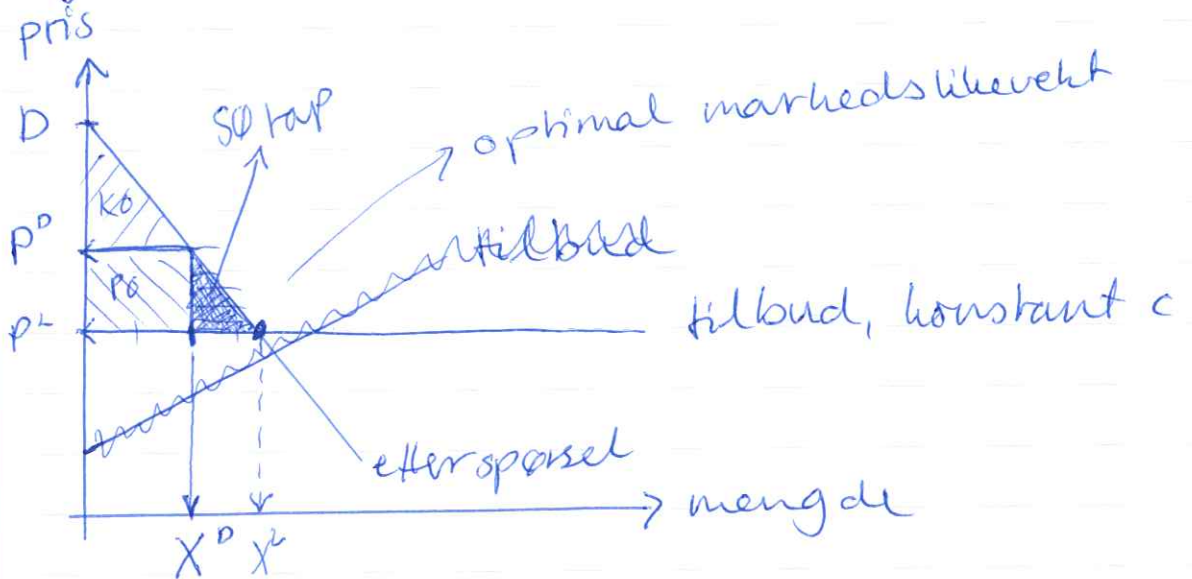 pris
D
SØ tap
optimal markedslikevekt
KO
P^D
tilbud
PO
P^L
tilbud, konstant c
etterspørsel
mengde
X^D X^L